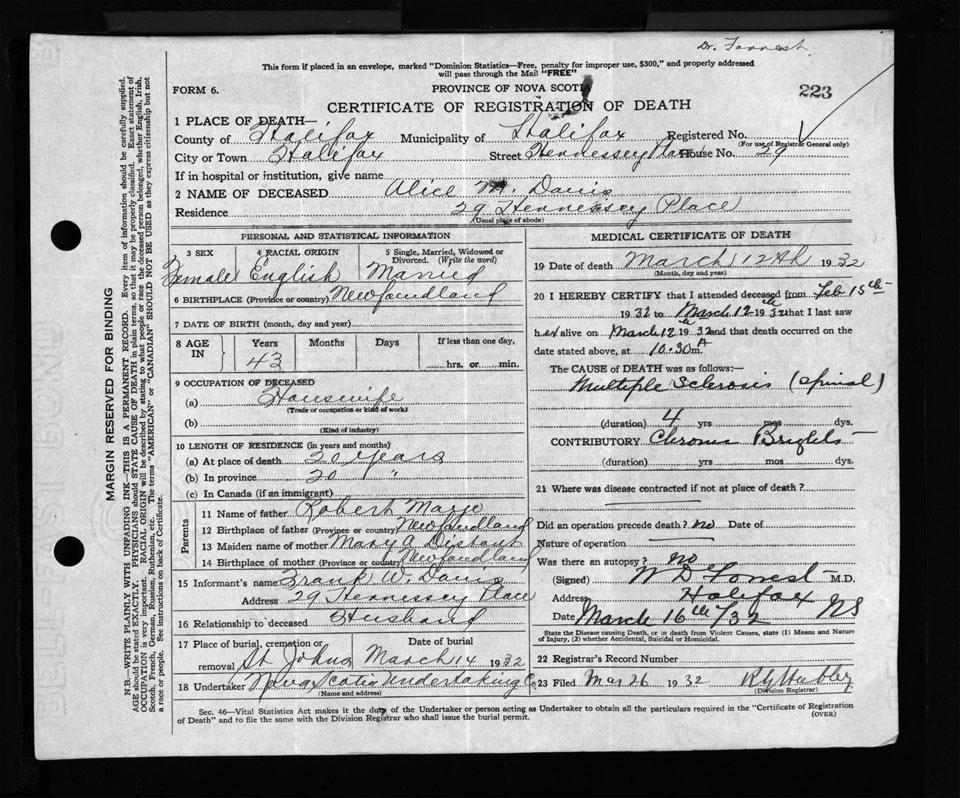 Dr. Forrest
This form if placed in an envelope, marked "Dominion Statistics—Free, penalty for improper use, $300," and properly addressed
will pass through the Mail "FREE"
FORM 6.
PROVINCE OF NOVA SCOTIA
223
CERTIFICATE OF REGISTRATION OF DEATH
1 PLACE OF DEATH—
County of Halifax Municipality of Halifax Registered No.
(For use of Registrar General only)
City or Town Halifax Street Hennessey Place House No. 29
If in hospital or institution, give name
2 NAME OF DECEASED Alice M. Davis
Residence 29 Hennessey Place
(Usual place of abode)
PERSONAL AND STATISTICAL INFORMATION
3 SEX 4 RACIAL ORIGIN 5 Single, Married, Widowed or Divorced. (Write the word)
Female English Married
6 BIRTHPLACE (Province or country) Newfoundland
7 DATE OF BIRTH (month, day and year)
8 AGE IN Years Months Days If less than one day,
43 hrs. or min.
9 OCCUPATION OF DECEASED
(a) Housewife
(Trade or occupation or kind of work)
(b)
(Kind of industry)
10 LENGTH OF RESIDENCE (in years and months)
(a) At place of death 20 years
(b) In province 20 "
(c) In Canada (if an immigrant)
Parents
11 Name of father Robert
12 Birthplace of father (Province or country) Newfoundland
13 Maiden name of mother Mary A
14 Birthplace of mother (Province or country) Newfoundland
15 Informant's name Frank W. Davis
Address 29 Hennessey Place
16 Relationship to deceased Husband
17 Place of burial, cremation or removal Date of burial
St. Johns March 14 1932
18 Undertaker Nova Scotia Undertaking Co
(Name and address)
MEDICAL CERTIFICATE OF DEATH
19 Date of death March 12th 1932
(Month, day and year)
20 I HEREBY CERTIFY that I attended deceased from Feb 15th
1932 to March 12th 1932 that I last saw
her alive on March 12th 1932 and that death occurred on the
date stated above, at 10.30 A m.
The CAUSE of DEATH was as follows:—
Multiple Sclerosis (spinal)
(duration) 4 yrs mos dys.
CONTRIBUTORY Chronic Brights
(duration) yrs mos dys.
21 Where was disease contracted if not at place of death?
Did an operation precede death? no Date of
Nature of operation
Was there an autopsy? no
(Signed) W D Forrest M.D.
Address Halifax NS
Date March 16th/32
State the Disease causing Death, or in death from Violent Causes, state (1) Means and Nature
of Injury, (2) whether Accidental, Suicidal or Homicidal.
22 Registrar's Record Number
23 Filed Mar 26 1932
(Division Registrar)
Sec. 46—Vital Statistics Act makes it the duty of the Undertaker or person acting as Undertaker to obtain all the particulars required in the "Certificate of Registration
of Death" and to file the same with the Division Registrar who shall issue the burial permit.
(OVER)
MARGIN RESERVED FOR BINDING
N.B.—WRITE PLAINLY WITH UNFADING INK—THIS IS A PERMANENT RECORD. Every item of information should be carefully supplied.
AGE should be stated EXACTLY. PHYSICIANS should STATE CAUSE OF DEATH in plain terms, so that it may be properly classified. Exact statement of
OCCUPATION is very important. RACIAL ORIGIN will be described by stating to what people or race the deceased person belonged, whether English, Irish,
Scotch, French, German, Russian, Ruthenian, etc. The terms "AMERICAN" or "CANADIAN" SHOULD NOT BE USED as they express citizenship but not
a race or people. See instructions on back of Certificate.